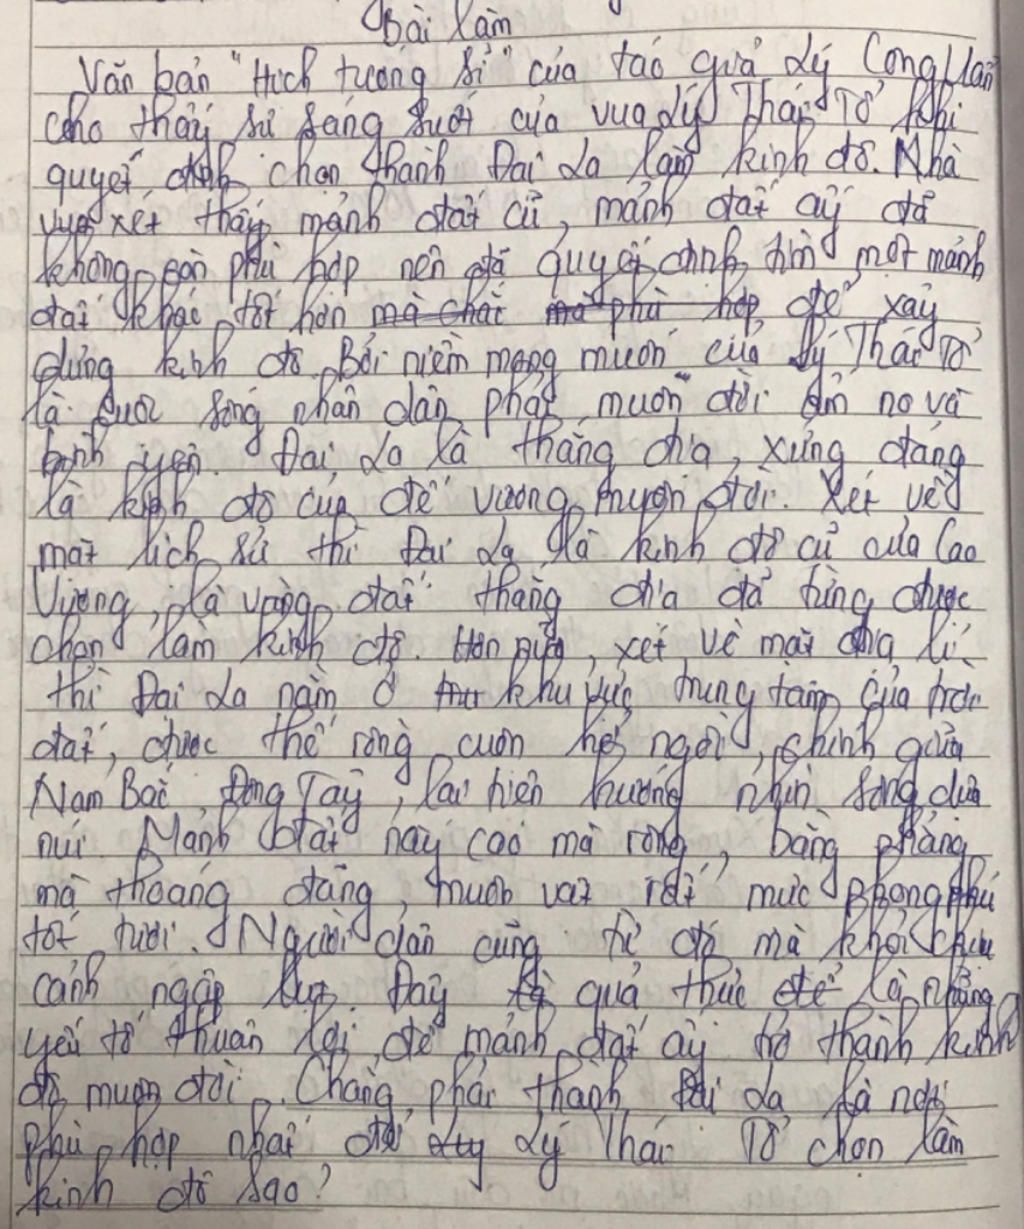 Bài làm
Văn bản "Hịch tướng sĩ" của tác giả Lý Công Uẩn
cho thấy sự sáng suốt của vua Lý Thái Tổ khi
quyết định chọn thành Đại La làm kinh đô. Nhà
vua xét thấy mảnh đất cũ, mảnh đất ấy đã
không còn phù hợp nên đã quyết định tìm một mảnh
đất khác tốt hơn mà chất mà phù hợp để xây
dựng kinh đô. Bởi niềm mong muốn của Lý Thái Tổ
là cuộc sống nhân dân phải muôn đời ấm no và
bình yên. Đại La là thắng địa, xứng đáng
là kinh đô của đế vương muôn đời. Xét về
mặt lịch sử thì Đại La là kinh đô cũ của Cao
Vương, là vùng đất thắng địa đã từng được
chọn làm kinh đô. Hơn nữa, xét về mặt địa lí
thì Đại La nằm ở khu vực trung tâm của trời
đất, được thế rồng cuộn hổ ngồi, chính giữa
Nam Bắc Đông Tây, lại tiện hướng nhìn sông dựa
núi. Mảnh đất này cao mà rộng, bằng phẳng
mà thoáng đãng, muôn vật rất mực phong phú
tốt tươi. Người dân cũng từ đó mà khỏi chịu
cảnh ngập lụt. Đây quả thực để là những
yếu tố thuận lợi để mảnh đất ấy trở thành kinh
đô muôn đời. Chẳng phải thành Đại La là nơi
phù hợp nhất để Lý Thái Tổ chọn làm
kinh đô sao?